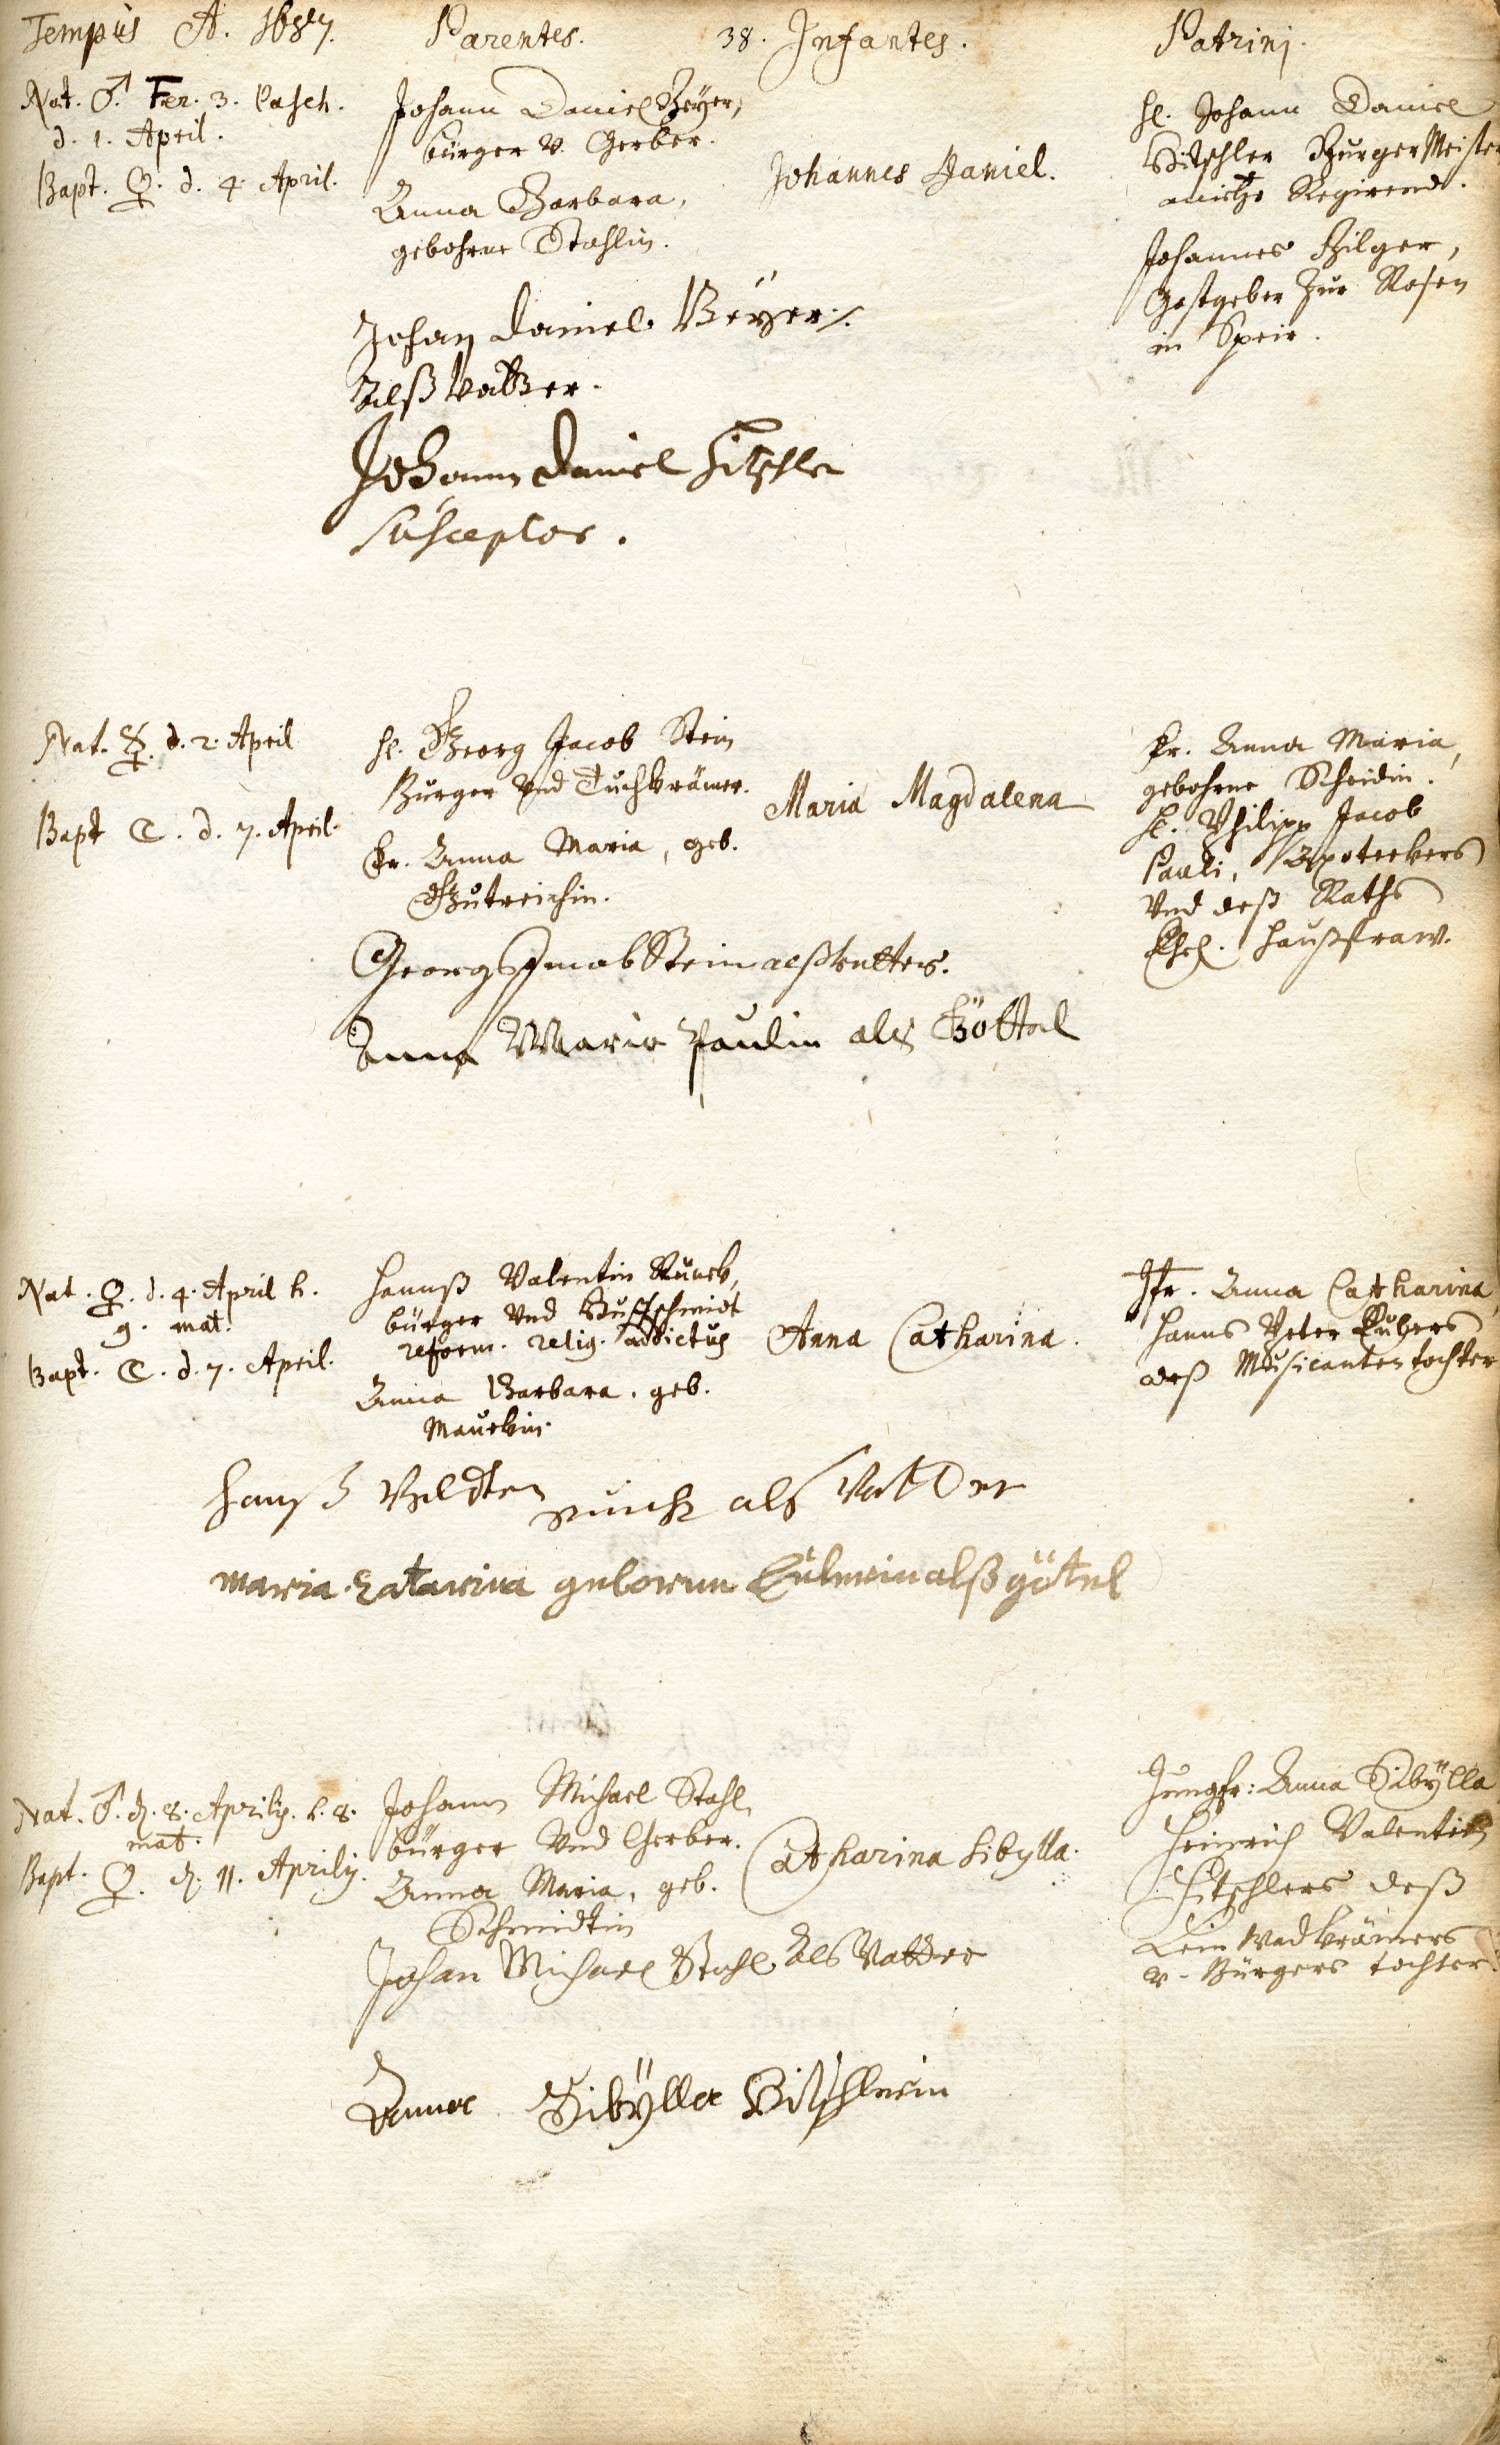 Tempus A. 1687.
Parentes.
38. Infantes.
Patrini.
Nat. ♂. Fer. 3. Pasch.
d. 1. April.
Bapt. ♀. d. 4. April.
Johann Daniel Beÿer,
bürger v. Gerber.
Anna Barbara,
gebohrne Stahlin.
Johannes Daniel.
H. Johann Daniel
Hitschler BurgerMeister
Regirend.
Johannes Hilger,
Gastgeber zur Rosen
in Speir.
Johan Daniel Beÿer
Alß Vatter.
Johann Daniel Hitschler
susceptor.
Nat. ☿. d. 2. April
Bapt ☾. d. 7. April.
H. Georg Jacob Stein
Burger Vnd Tuchkrämer.
Fr. Anna Maria, geb.
Gutreichin.
Maria Magdalena
Fr. Anna Maria,
gebohrne Scheidin.
H. Philipp Jacob
Pauli, Apoteckers
Vnd deß Raths
Ehel. Haußfraw.
Georg Jacob Stein alß Vatter.
Anna Maria Paulin als Göttel
Nat. ♀. d. 4. April h.
9. mat.
Bapt. ☾. d. 7. April.
Hannß Valentin
bürger Vnd Huffschmidt
reform. relig. addictus
Anna Barbara. geb.
Mauckin.
Anna Catharina.
Jfr. Anna Catharina,
Hanns Peter
deß Musicanten tochter
Hanß Veldten als Vatter
maria Catarina geborne alß götel
Nat. ♂. d. 8. Aprilis. h. 8.
mat.
Bapt. ♀. d. 11. Aprilis.
Johann Michael Stahl
bürger Vnd Gerber.
Anna Maria, geb.
Schmidtin
Catharina Sibylla.
Jungfr: Anna Sibÿlla
Heinrich Valentin
Hitschlers deß
Leinwadkrämers
v. Bürgers tochter.
Johan Michael Stahl Als Vatter
Anna Sibÿlla Hitschlerin